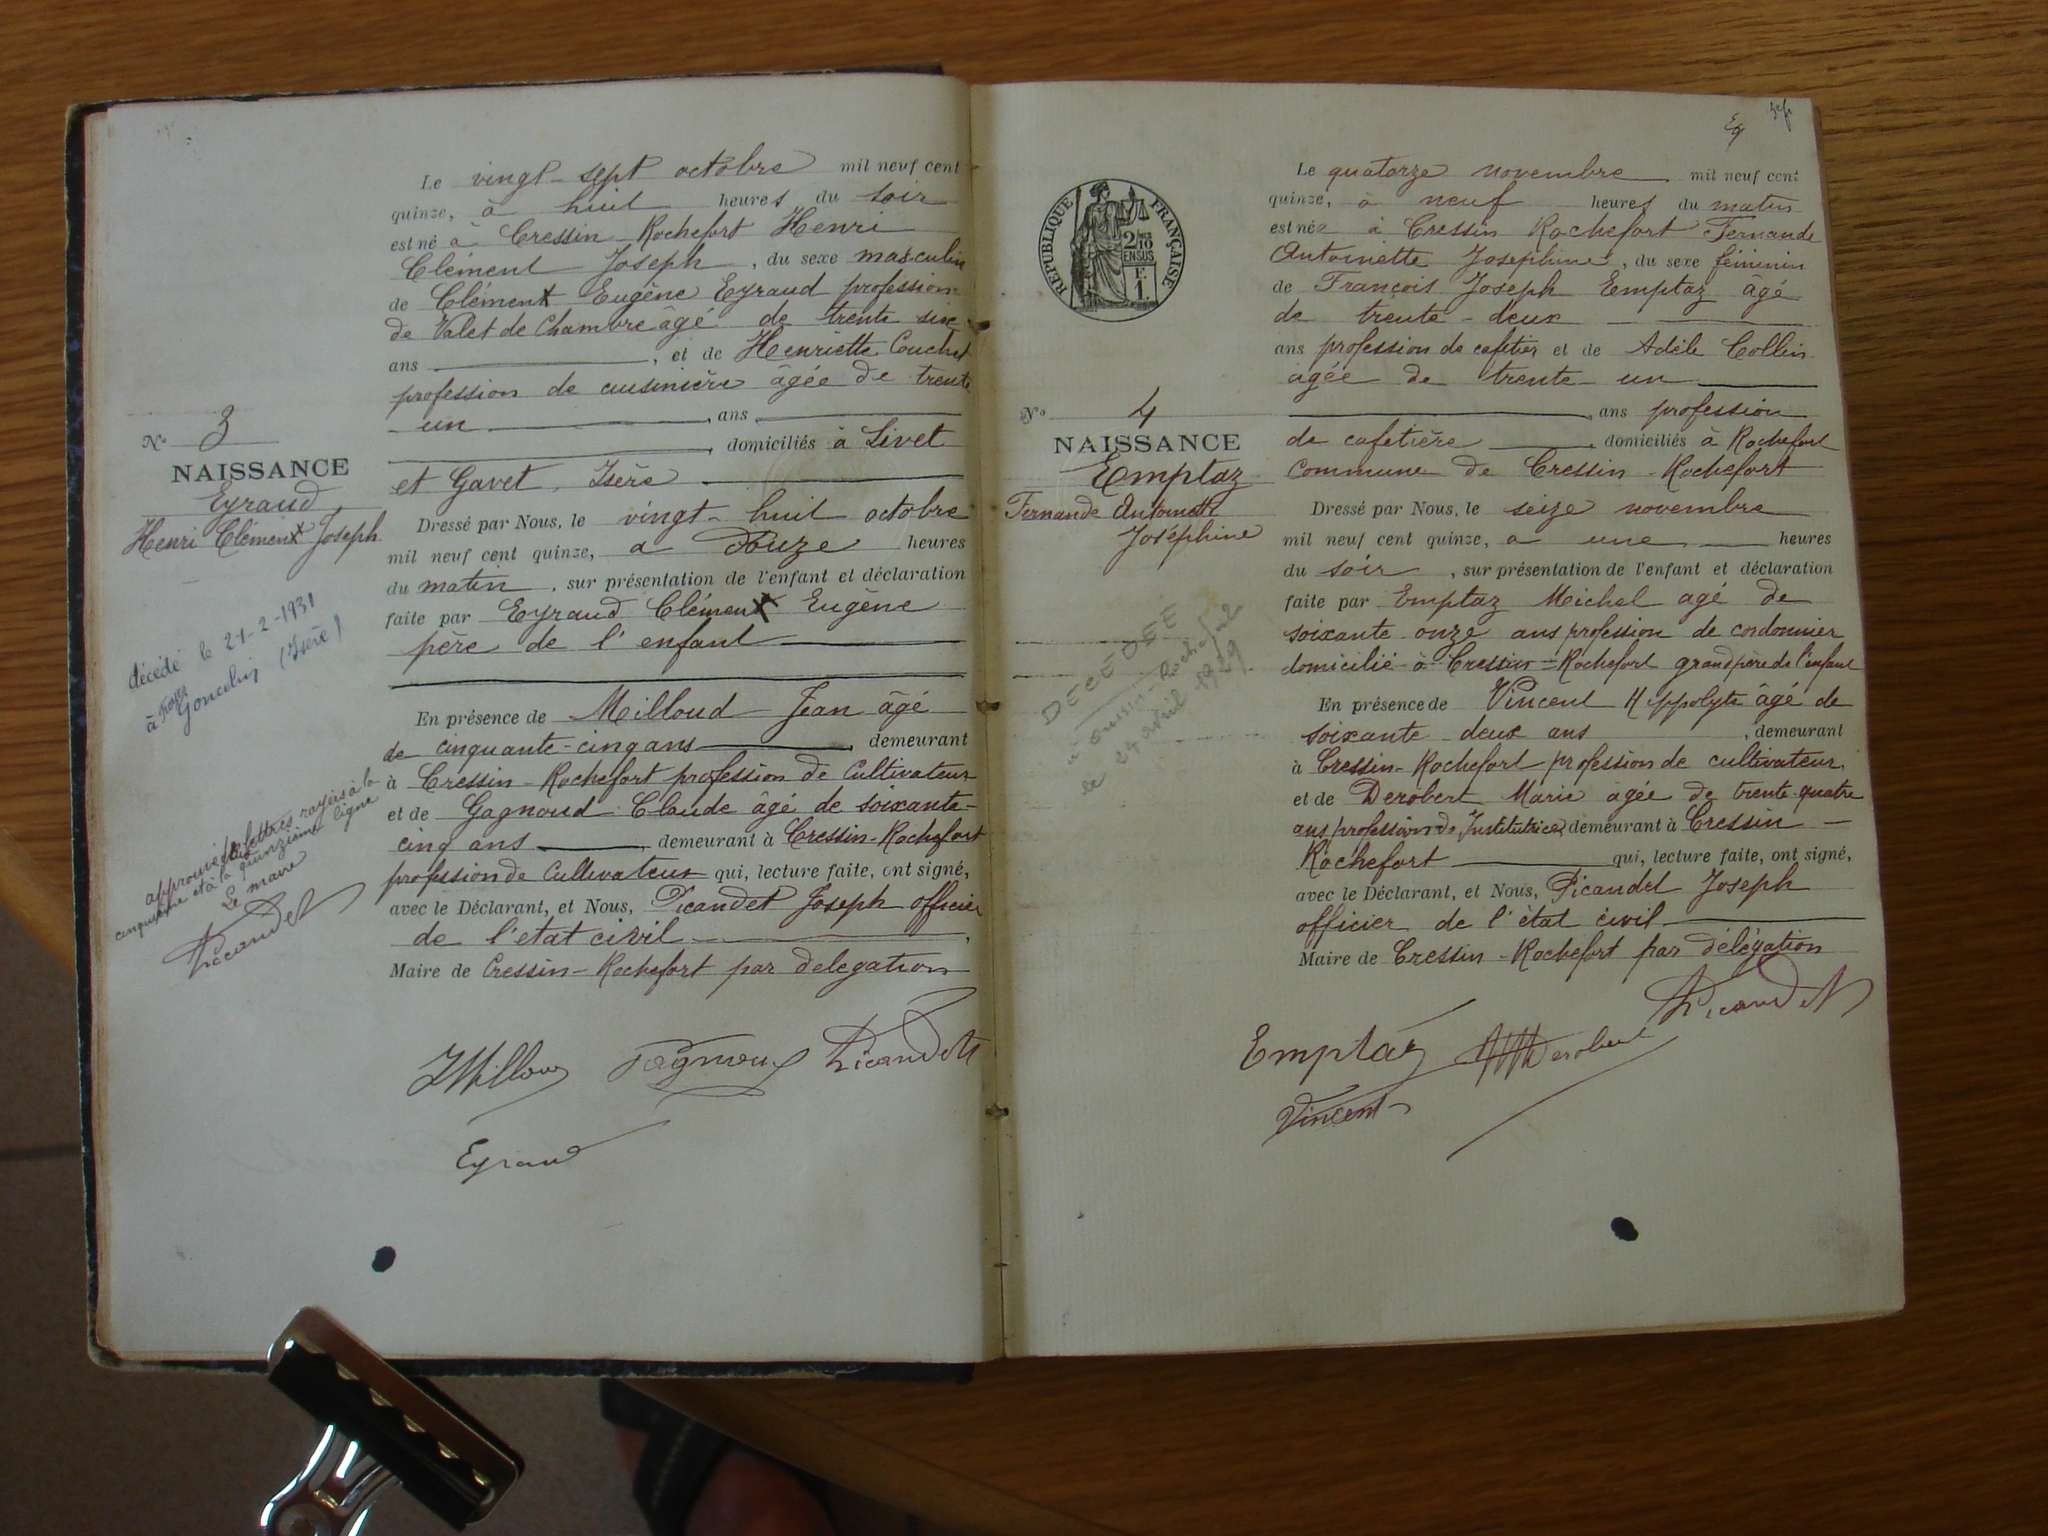 Le vingt-sept octobre mil neuf cent
quinze, à huit heures du soir
est né à Cressin-Rochefort Henri
Clément Joseph, du sexe masculin
de Clément Eugène Eyraud profession
de Valet de Chambre âgé de trente six
ans, et de Henriette Couchet
profession de cuisinière âgée de trente
un, ans
, domiciliés à Livet
et Gavet, Isère
Dressé par Nous, le vingt-huit octobre
mil neuf cent quinze, a douze heures
du matin, sur présentation de l'enfant et déclaration
faite par Eyraud Clément Eugène
père de l'enfant
En présence de Milloud Jean âgé
de cinquante-cinq ans, demeurant
à Cressin-Rochefort profession de Cultivateur
et de Gagnoud Claude âgé de soixante-
cinq ans, demeurant à Cressin-Rochefort
profession de Cultivateur qui, lecture faite, ont signé,
avec le Déclarant, et Nous, Picandet Joseph officier
de l'etat civil,
Maire de Cressin-Rochefort par delegation
JMilloud Gagnoud Picandet
Eyraud
N° 3
NAISSANCE
Eyraud
Henri Clément Joseph
décédé le 21-2-1931
à Goncelin (Isère)
approuvé lettres rayées à la
cinquième et à la quinzième ligne
Le maire
Picandet
RÉPUBLIQUE FRANÇAISE
2/10
EN SUS
F.
1.
N° 4
NAISSANCE
Emptaz
Fernande Antoinette
Joséphine
DECEDEE
à Cressin-Rochefort
le avril 1929
Le quatorze novembre mil neuf cent
quinze, à neuf heures du matin
est née à Cressin Rochefort Fernande
Antoinette Joséphine, du sexe féminin
de François Joseph Emptaz agé
de trente-deux
ans profession de cafetier et de Adèle Collin
agée de trente-un
, ans profession
de cafetière, domiciliés à Rochefort
commune de Cressin-Rochefort
Dressé par Nous, le seize novembre
mil neuf cent quinze, à une heures
du soir, sur présentation de l'enfant et déclaration
faite par Emptaz Michel agé de
soixante onze ans profession de cordonnier
domicilié à Cressin-Rochefort grand père de l'enfant
En présence de Vincent Hippolyte âgé de
soixante deux ans, demeurant
à Cressin-Rochefort profession de cultivateur,
et de Derobert Marie agée de trente-quatre
ans profession de Institutrice, demeurant à Cressin-
Rochefort qui, lecture faite, ont signé,
avec le Déclarant, et Nous, Picandet Joseph
officier de l'état civil
Maire de Cressin-Rochefort par délégation
Picandet
Emptaz Derobert
Vincent